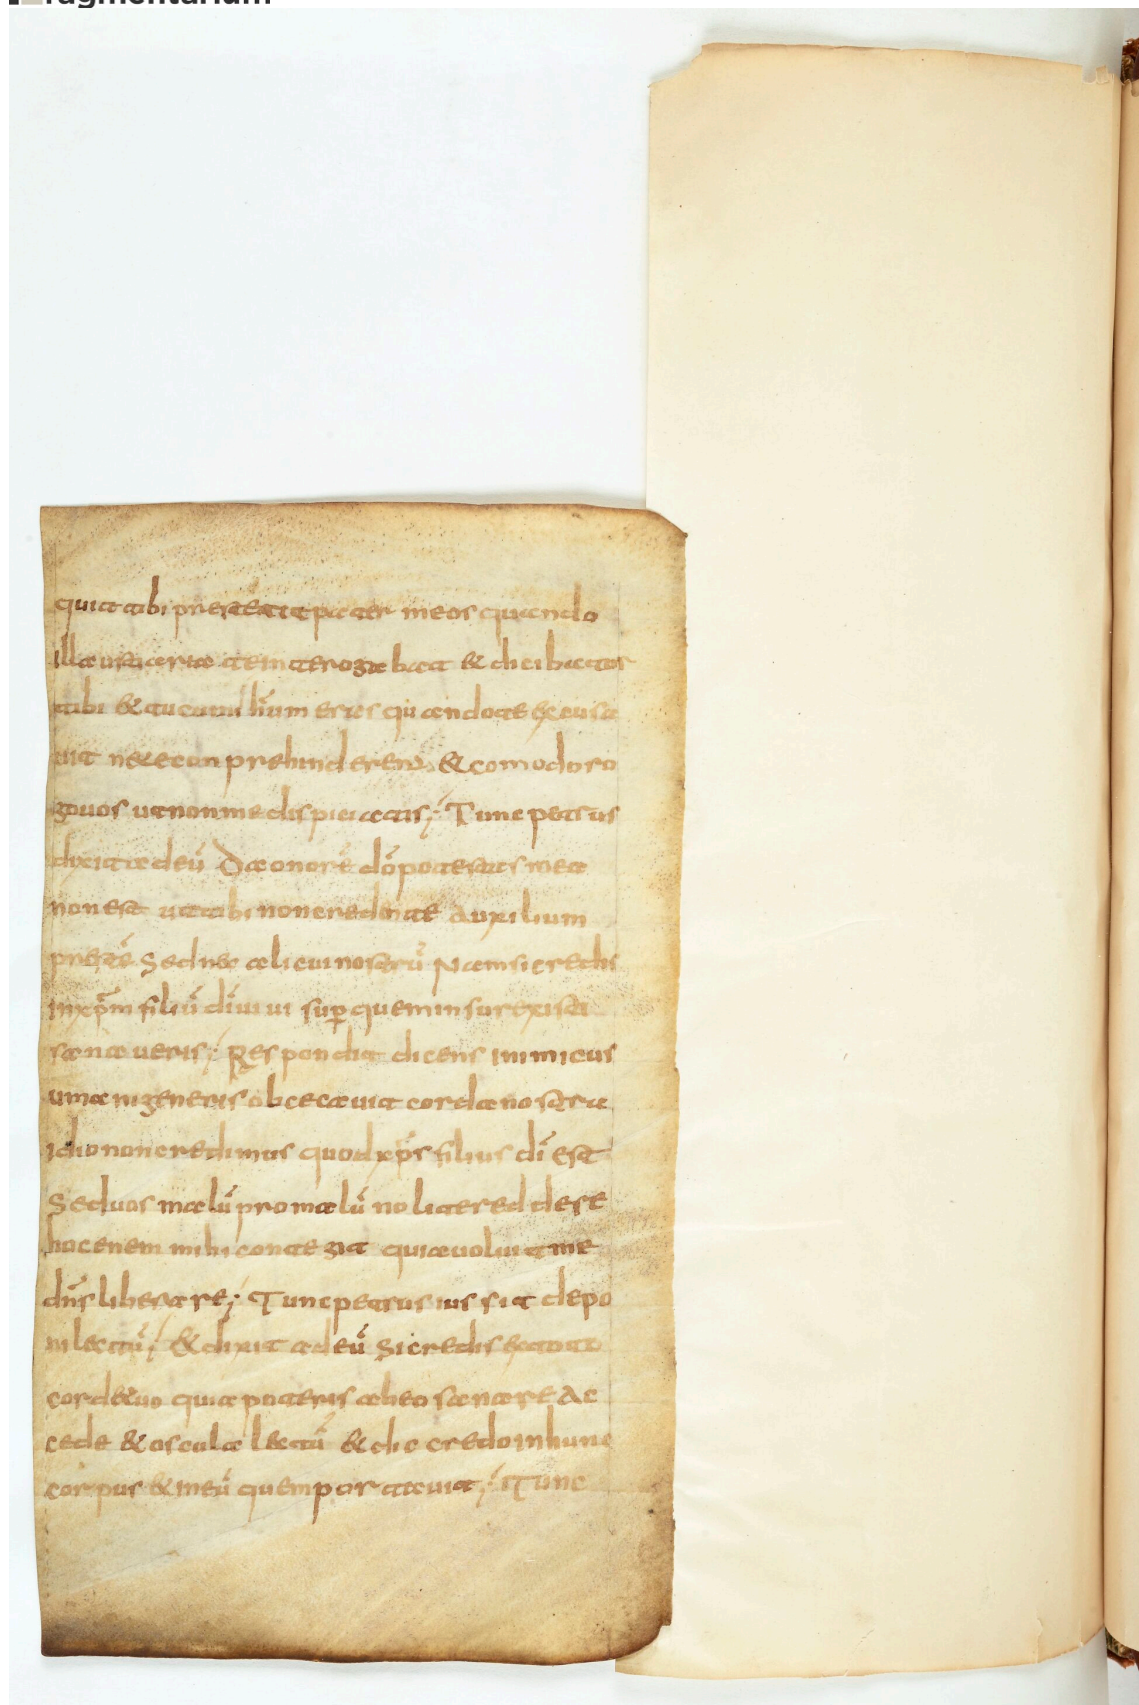 fragmentarium
quia tibi prestetit pater meos quando
illa ustiaria te interogabat & dicibat os
tibi & tu cum illum eras quando te excusa
uit ne te conprehinderent & comodo ro
go uos ut non me dispiciatis; Tunc petrus
dixit ad eū Da onorē dō potestas mea
non est ut tibi non credente auxilium
prestē Sed nec alicui nostrū Nam si credis
in xp̄m filiū dī uiui sup̱ quem insurexisti
sana ueris; Respondit dicens inimicus
umani generis obcecauit corda nostra
idio non credimus quod xp̄s filius dī est
Sed uos malū pro malū nolite reddere
hoc enem mihi contegit quia uoluit me
dn̄s liberare; Tunc petrus iussit depo
ni lectū; & dixit ad eū Si credis ex toto
corde tuo quia poteris ab eo sanare Ac
cede & oscula lectū & dic credo in hunc
corpus & in eū quem portauit; Tunc